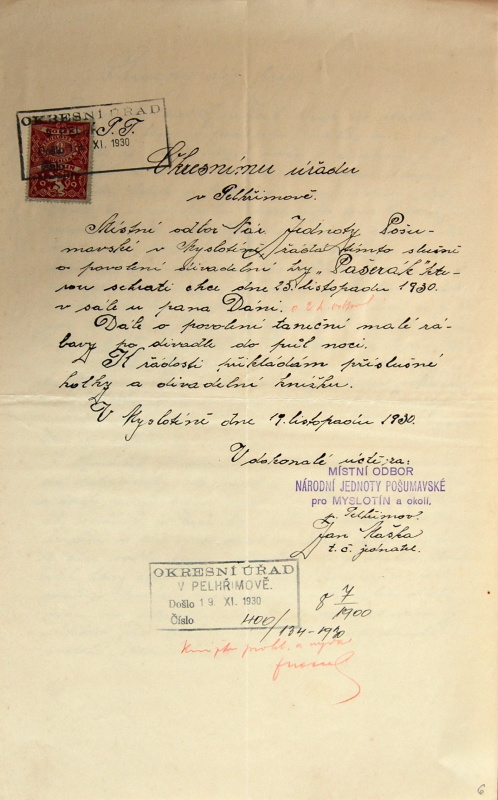 OKRESNÍ ÚŘAD
P. T.
XI. 1930
Okresnímu úřadu
v Pelhřimově.
Místní odbor Nár. Jednoty Pošu-
mavské v Myslotíně žádá tímto slušně
o povolení divadelní hry „Pašerák" kte-
rou sehrati chce dne 23. listopadu 1930.
v sále u pana Dáni. o 2 h.
Dále o povolení taneční malé zá-
bavy po divadle do půl noci.
K žádosti přikládám příslušné
kolky a divadelní knížku.
V Myslotíně dne 19. listopadu 1930.
V dokonalé úctě za:
MÍSTNÍ ODBOR
NÁRODNÍ JEDNOTY POŠUMAVSKÉ
pro MYSLOTÍN a okolí.
p. Pelhřimov.
Jan Maška
t. č. jednatel.
OKRESNÍ ÚŘAD
V PELHŘIMOVĚ.
Došlo 19. XI. 1930
Číslo 400/134-1930
8 7/1900
6